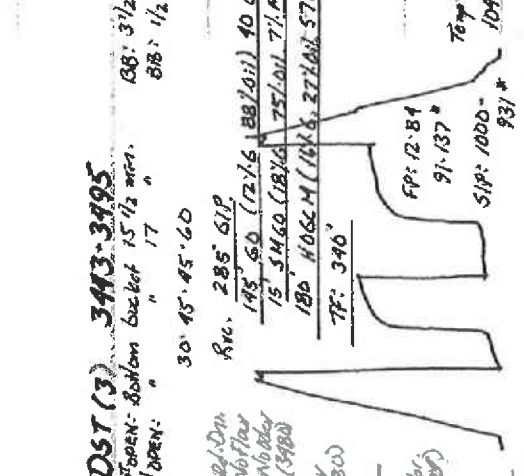 DST (3) 3443-3495
OPEN: Bottom bucket 15 1/2 min. BB: 3 1/2
OPEN: " " 17 " BB: 1/2
30-45-45-60
Rec. 285' GIP
145' GO (12% G 88% Oil) 40
15' SMGO (18% G 75% Oil 7%
180' HOGCM (16% G, 27% Oil 57
TF: 340'
FP: 12-84
91-137#
SIP: 1000-
931#
Temp
104
No Flow
(3480)